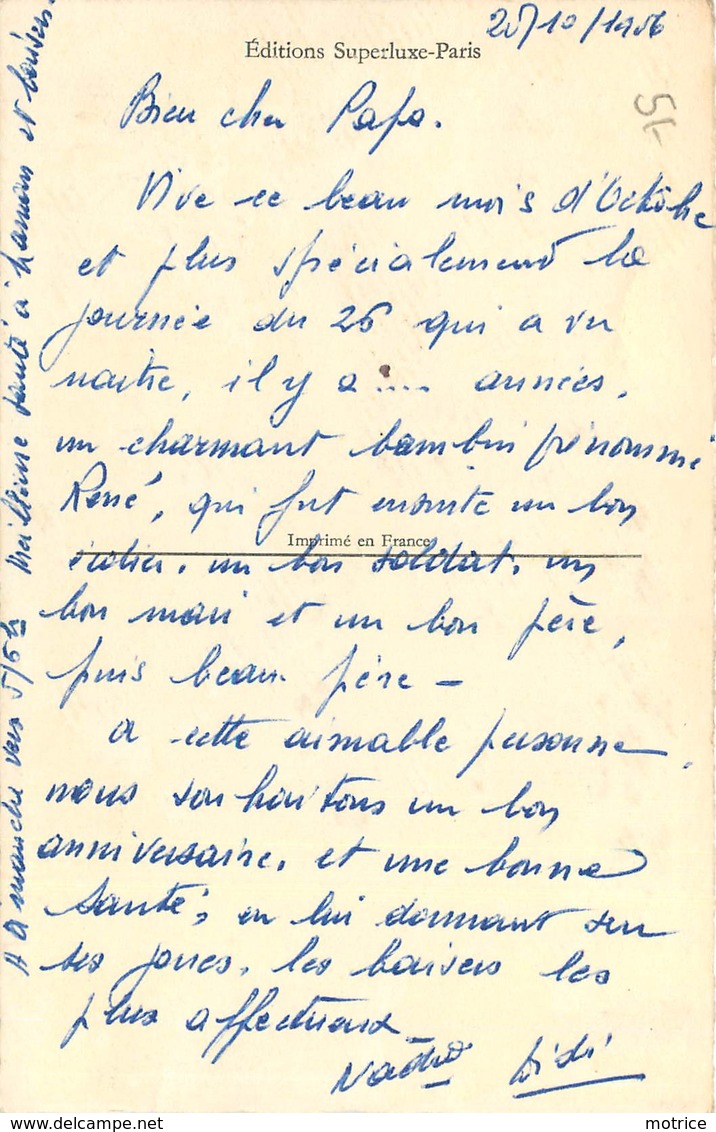 Editions Superluxe-Paris
Bien cher Papa.
Vive ce beau mois d'Octobre
et plus spécialement la
journée du 26 qui a vu
naitre, il y a .... années,
un charmant bambin prénommé
René, qui fut ensuite un bon
Imprimé en France
écolier, un bon soldat, un
bon mari et un bon père,
puis beau père —
A cette aimable personne,
nous souhaitons un bon
anniversaire, et une bonne
santé, en lui donnant sur
ses joues, les baisers les
plus affectueux
Didi
A dimanche vers 5/6h Meilleure santé à Maman et baisers
51-
motrice